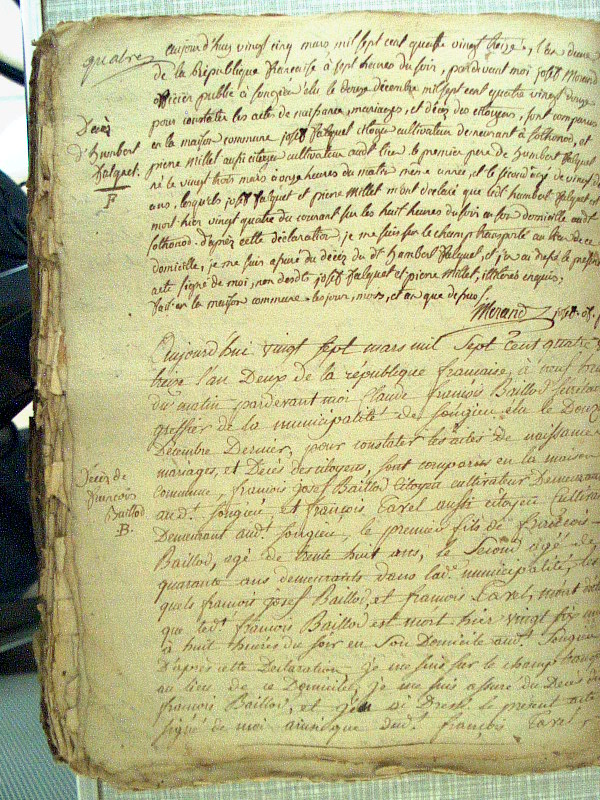 quatre
aujourd'huy vingt cinq mars mil sept cent quatre vingt treize, l'an deux
de la République francaise à sept heures du soir, pardevant moi joseph Morand
officier public à songieu élu le douze décembre mil sept cent quatre vingt douze
pour constater les actes de naissance, mariages, et décès des citoyens, sont comparus
en la maison commune joseph falquet citoyen cultivateur demeurant à lothonod, et
pierre Millet aussi citoyen cultivateur audit lieu le premier pere de humbert falquet
né le vingt trois mars à onze heures du matin meme année, et le second agé de vingt
ans, lesquels joseph falquet et pierre Millet m'ont déclaré que ledt humbert falquet est
mort hier vingt quatre du courant sur les huit heures du soir en son domicile audit
lothonod. d'après cette déclaration je me suis sur le champ transporté au lieu de ce
domicile, je me suis assuré du décès du dt Humbert falquet, et j'en ai dressé le présent
acte signé de moi, non desdts joseph falquet et pierre Millet, illiterés enquis.
fait en la maison commune les jour, mois, et an que dessus.
Morand
Décès
d'humbert
falquet.
F
Aujourd'hui vingt sept mars mil Sept Cent quatre
treize l'an Deux de la république francaise, à neuf heures
du matin pardevant moi Claude françois Baillod Secrétaire
greffier de la municipalité de Songieu elu le Douze
Décembre Dernier, pour constater les actes de naissance
mariages, et Décès des citoyens, sont comparus en la maison
commune, françois Josef Baillod Citoyen cultivateur Demeurant
audt. Songieu et françois Tavel aussi citoyen Cultivateur
Demeurant audt. Songieu, le premier fils de François
Baillod, agé de trente huit ans, le Second agé de
quarante ans demeurants dans ladt. municipalité, les
quels françois Josef Baillod, et françois Tavel, m'ont déclaré
que ledt. françois Baillod est mort hier vingt six mars
à huit heures du soir en Son Domicile audt. Songieu
D'après cette Declaration je me suis sur le champ transporté
au lieu de ce Domicile, je me suis assuré du Décès du
françois Baillod, et j'en ai Dressé le présent acte
signé de moi ainsi que dudt. françois Tavel
Décès de
françois
Baillod
B.